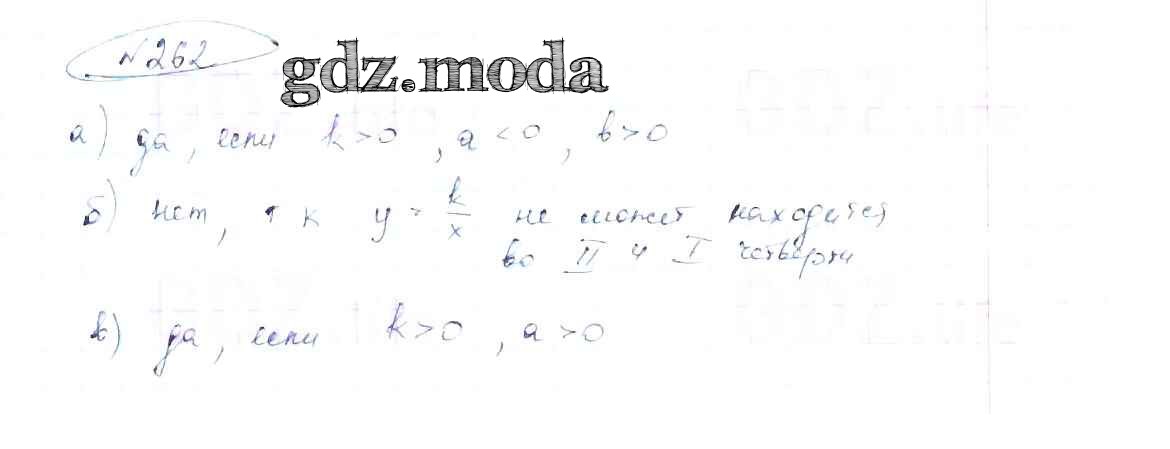 №262
gdz.moda
а) да, если k>0, a<0, b>0
б) нет, т к y = k/x не может находится
во II и I четверти
в) да, если k>0, a>0